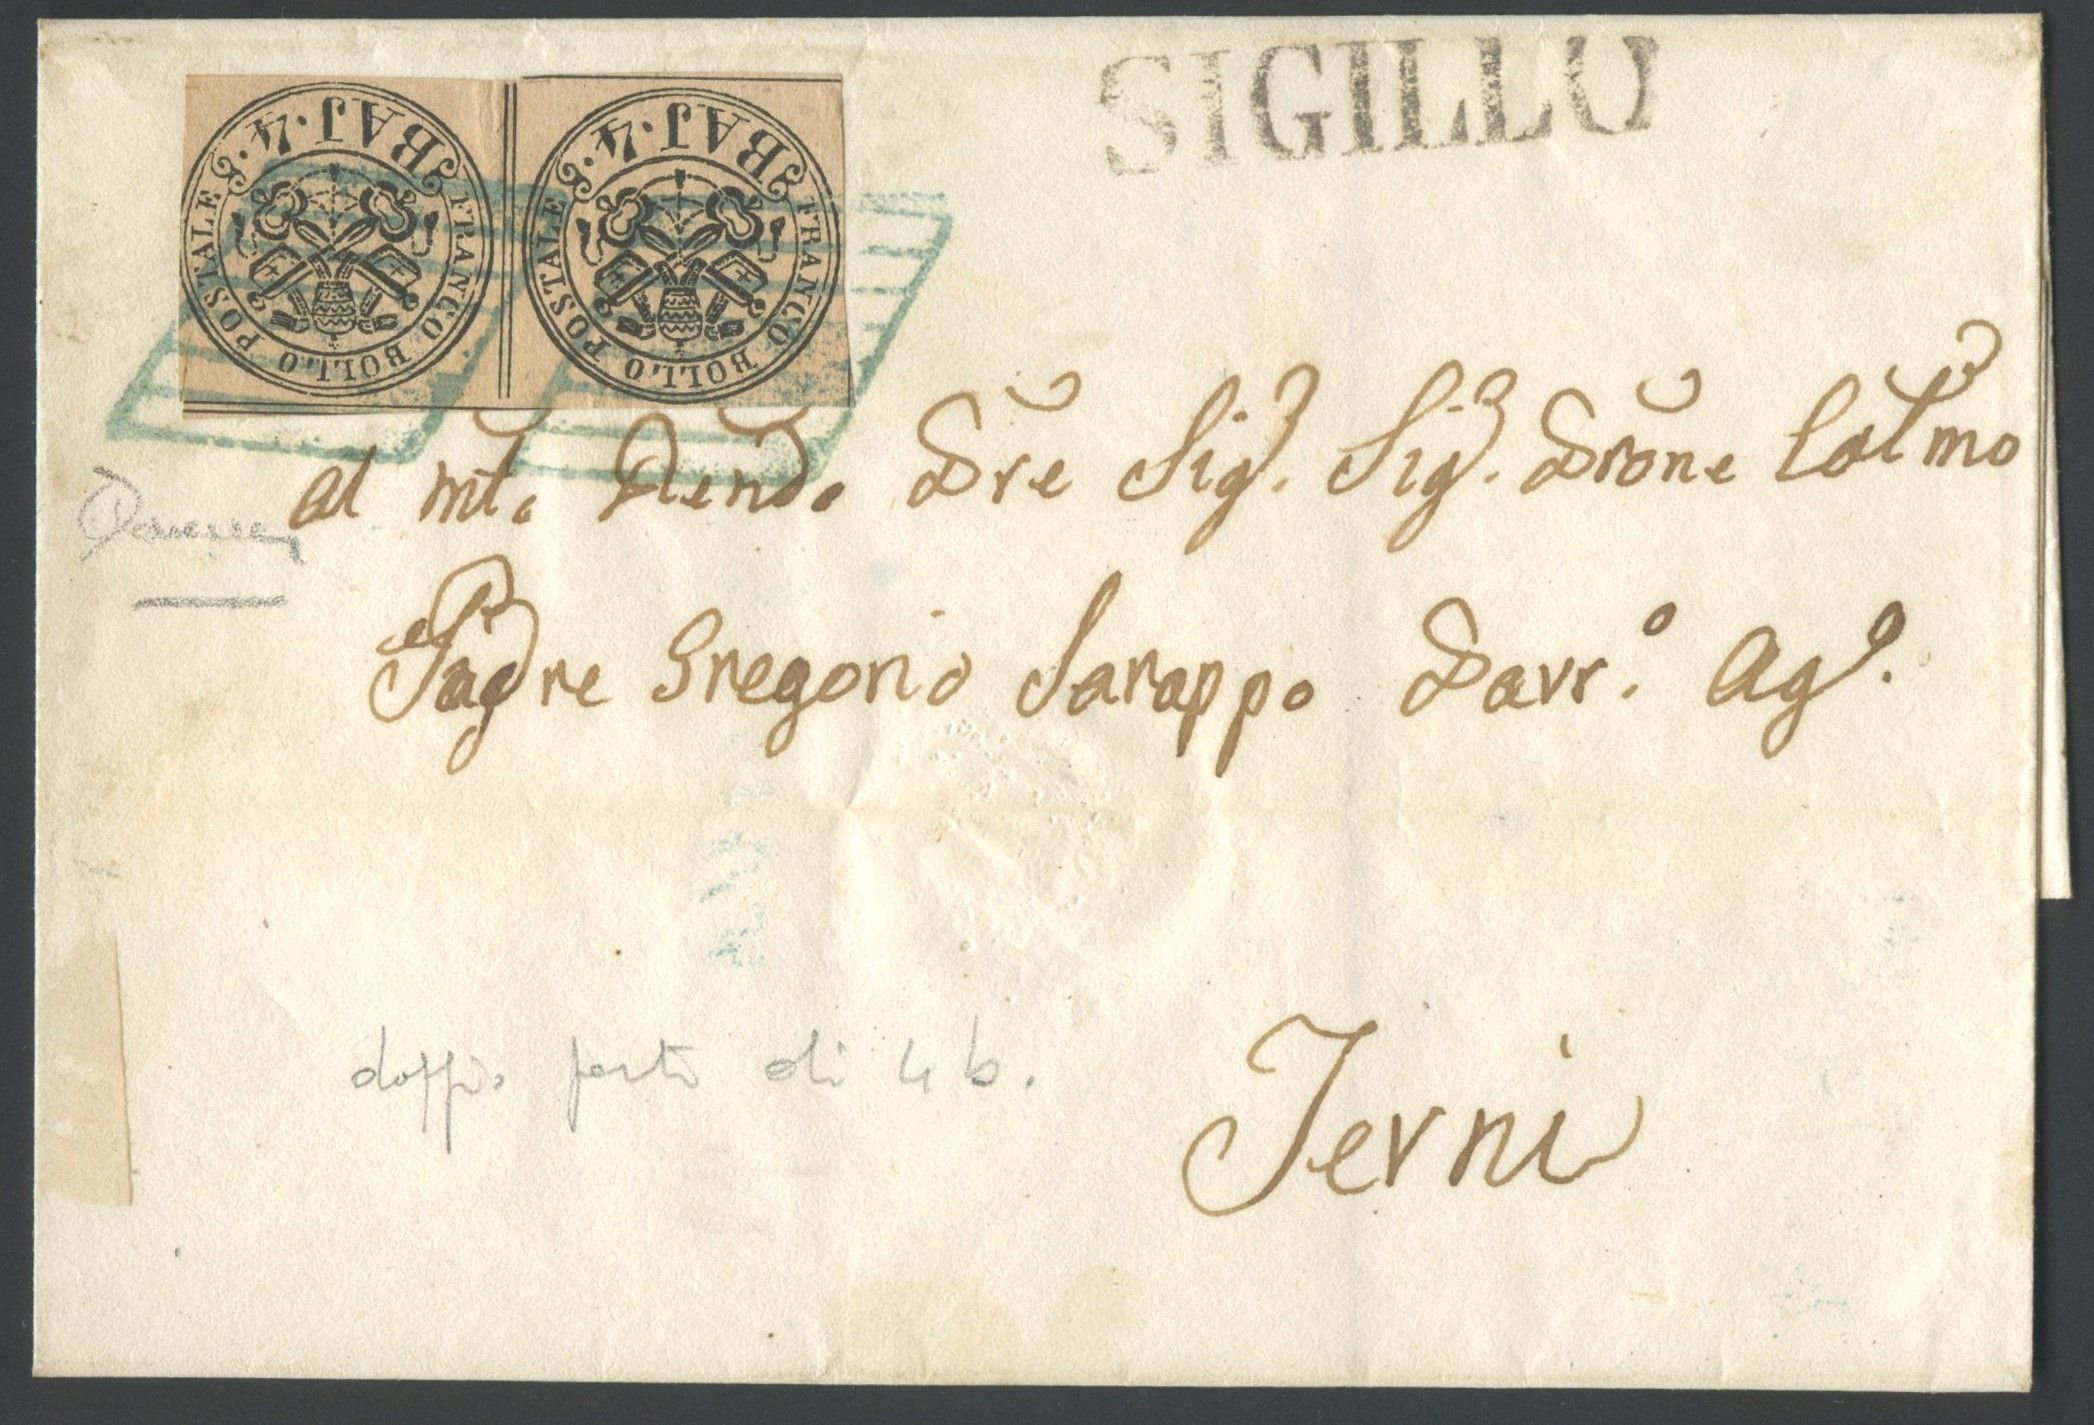 SIGILLO
BAJ. 4. BAJ. 4.
FRANCO BOLLO POSTALE FRANCO BOLLO POSTALE
al Mt. Rend. Pre Sig. Sig. Prone Colmo
Padre Gregorio Sarappo Parr.º Ag.º
doppio porto di 4 b.
Terni